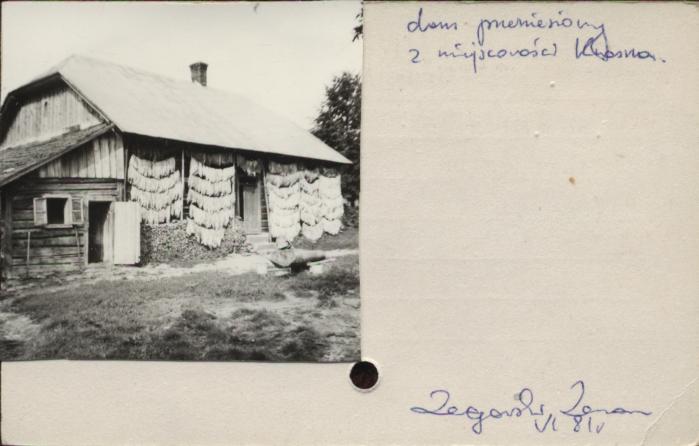 dom przeniesiony
z miejscowości Krasna.
Zegarski Zenon
VI 81r